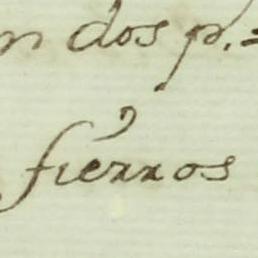 n dos p.=
fierros